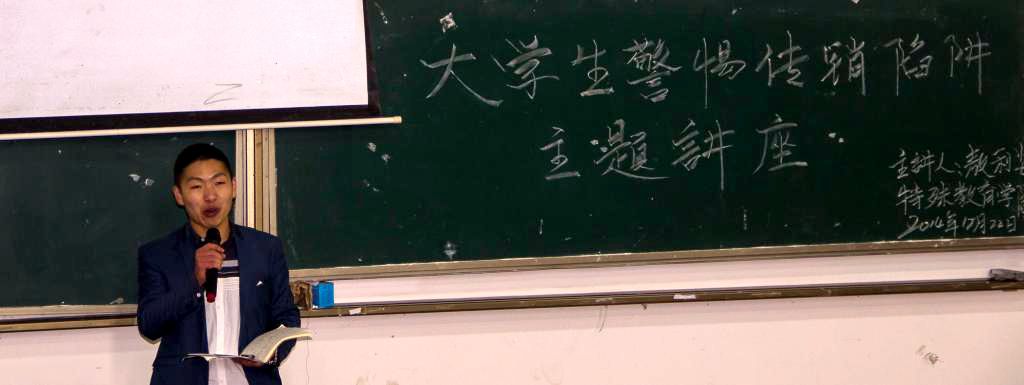 大学生警惕传销陷阱
主題講座
主讲人:
特殊教育学
2014年12月22日